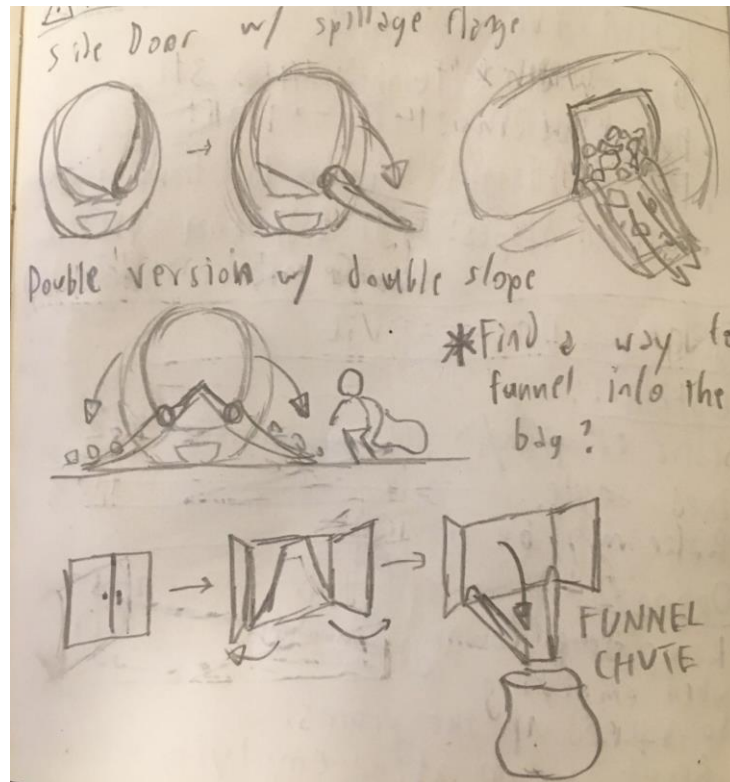 Side Door w/ spillage flange
Double version w/ double slope
*Find a way to
funnel into the
bag?
FUNNEL
CHUTE